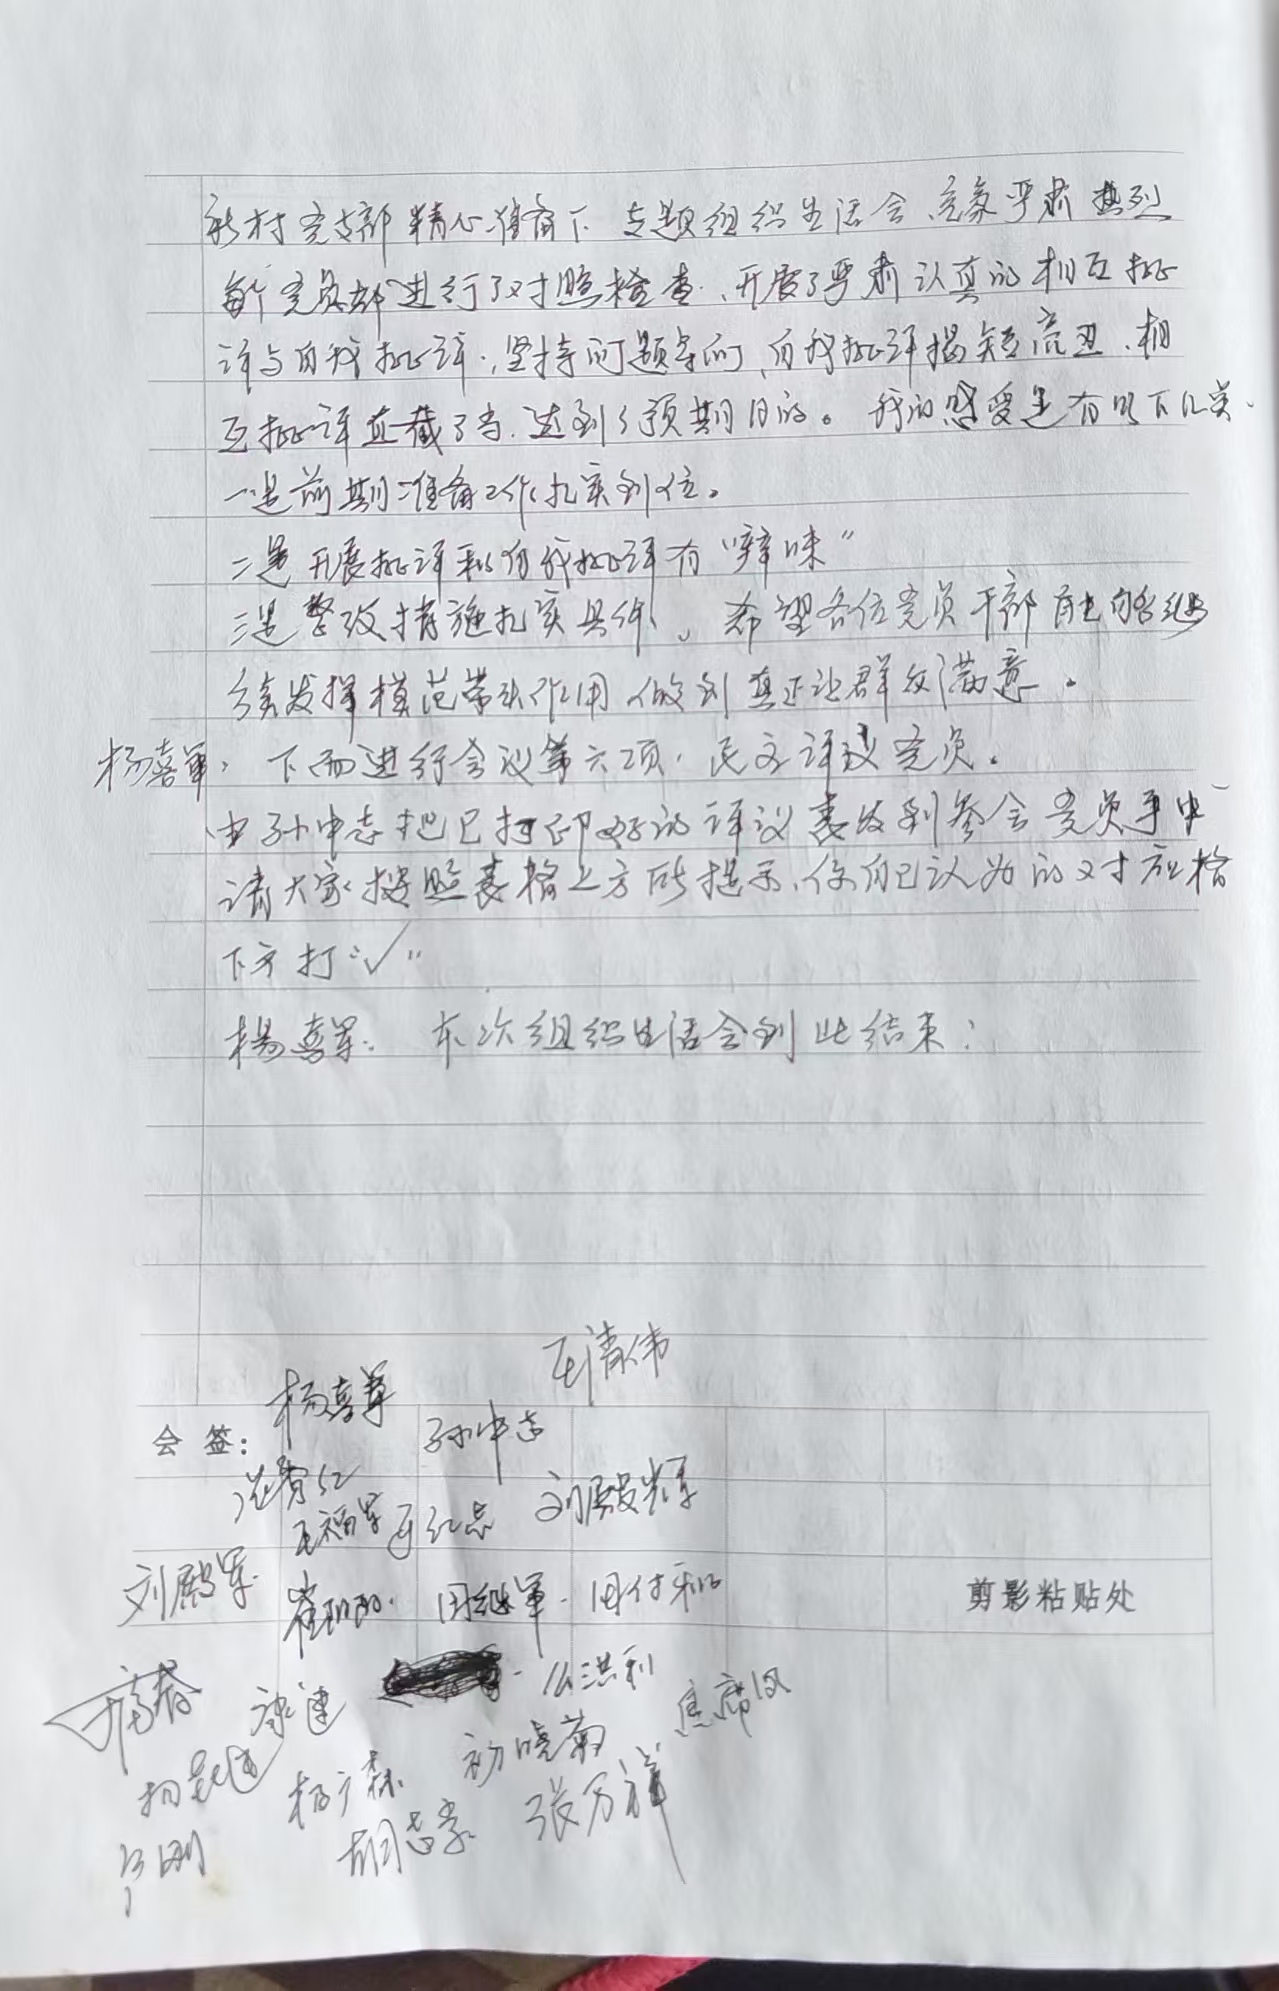 新村党支部精心准备下 专题组织生活会气氛严肃热烈
每个党员都进行了对照检查、开展了严肃认真的相互批
评与自我批评、坚持问题导向、自我批评揭短亮丑、相
互批评直截了当、达到了预期目的。我的感受是有以下几点、
一是前期准备工作扎实到位。
二是开展批评和自我批评有“辣味”
三是整改措施扎实具体、希望各位党员干部 能继
续发挥模范带头作用 做到真正让群众满意。
杨喜军: 下面进行会议第六项、民主评议党员。
由孙中志把已打印好的评议表发到参会党员手中
请大家按照表格上方所提示、你自己认为的对应格
下方打“√”
杨喜军: 本次组织生活会到此结束:
王清伟
会签: 杨喜军 孙中志
王福军 于红志 刘殿辉
刘殿军 周继军 周付和
康建 么洪利 焦席风
杨广森 初晓菊
胡志家 张万祥
剪影粘贴处